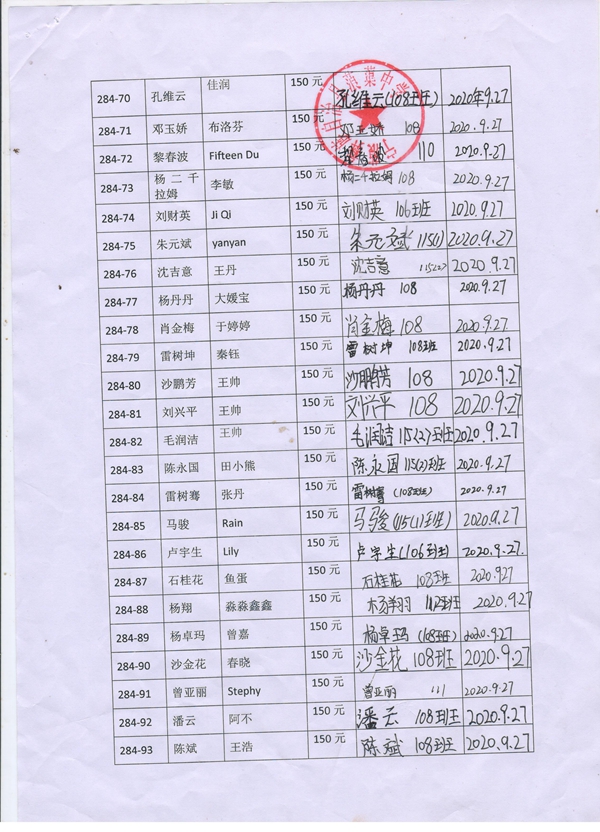 284-70 孔维云 佳润 150 元 孔维云(108班) 2020年9.27
284-71 邓玉娇 布洛芬 150 元 邓玉娇 108 2020.9.27
284-72 黎春波 Fifteen Du 150 元 黎春波 110 2020.9.27
284-73 杨二千拉姆 李敏 150 元 杨二千拉姆 108 2020.9.27
284-74 刘财英 Ji Qi 150 元 刘财英 106班 2020.9.27
284-75 朱元斌 yanyan 150 元 朱元斌 115(1) 2020.9.27
284-76 沈吉意 王丹 150 元 沈吉意 115(2) 2020.9.27
284-77 杨丹丹 大媛宝 150 元 杨丹丹 108 2020.9.27
284-78 肖金梅 于婷婷 150 元 肖金梅 108 2020.9.27
284-79 雷树坤 秦钰 150 元 雷树坤 108班 2020.9.27
284-80 沙鹏芳 王帅 150 元 沙鹏芳 108 2020.9.27
284-81 刘兴平 王帅 150 元 刘兴平 108 2020.9.27
284-82 毛润洁 王帅 150 元 毛润洁 115(2)班 2020.9.27
284-83 陈永国 田小熊 150 元 陈永国 115(2)班 2020.9.27
284-84 雷树骞 张丹 150 元 雷树骞 (108班) 2020.9.27
284-85 马骏 Rain 150 元 马骏 (115(1)班) 2020.9.27
284-86 卢宇生 Lily 150 元 卢宇生(106班) 2020.9.27.
284-87 石桂花 鱼蛋 150 元 石桂花 108班 2020.927
284-88 杨翔 淼淼鑫鑫 150 元 杨翔羽 112班 2020.9.27
284-89 杨卓玛 曾嘉 150 元 杨卓玛 (108班) 2020.9.27
284-90 沙金花 春晓 150 元 沙金花 108班 2020.9.27
284-91 曾亚丽 Stephy 150 元 曾亚丽 111 2020.9.27
284-92 潘云 阿不 150 元 潘云 108班 2020.9.27
284-93 陈斌 王浩 150 元 陈斌 108班 2020.9.27